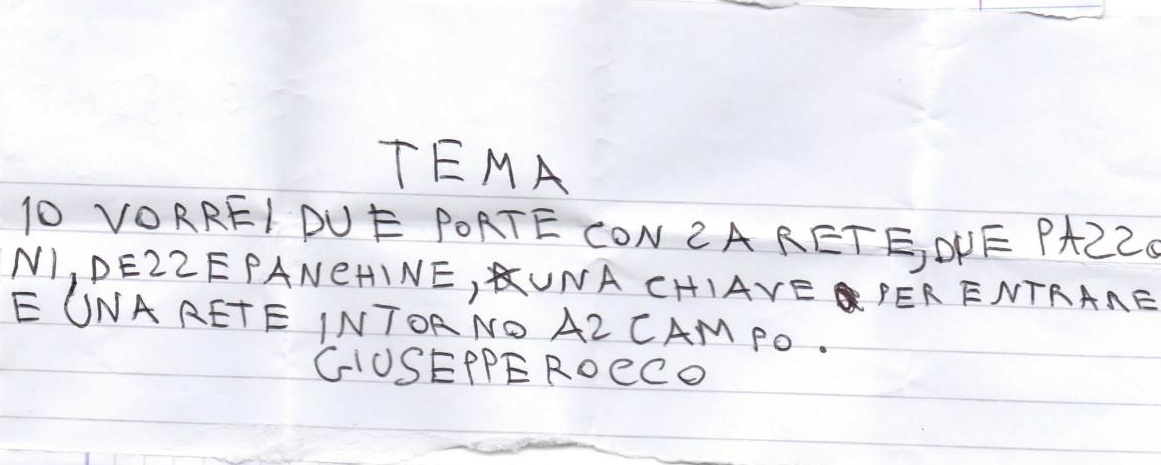 TEMA
IO VORREI DUE PORTE CON LA RETE, DUE PALLO
NI, DELLE PANCHINE, UNA CHIAVE PER ENTRARE
E UNA RETE INTORNO AL CAMPO.
GIUSEPPE ROCCO